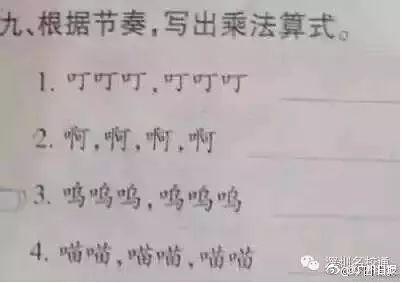 九、根据节奏,写出乘法算式。
1. 叮叮叮,叮叮叮
2. 啊,啊,啊,啊
3. 呜呜呜,呜呜呜
4. 喵喵,喵喵,喵喵
深圳名校通